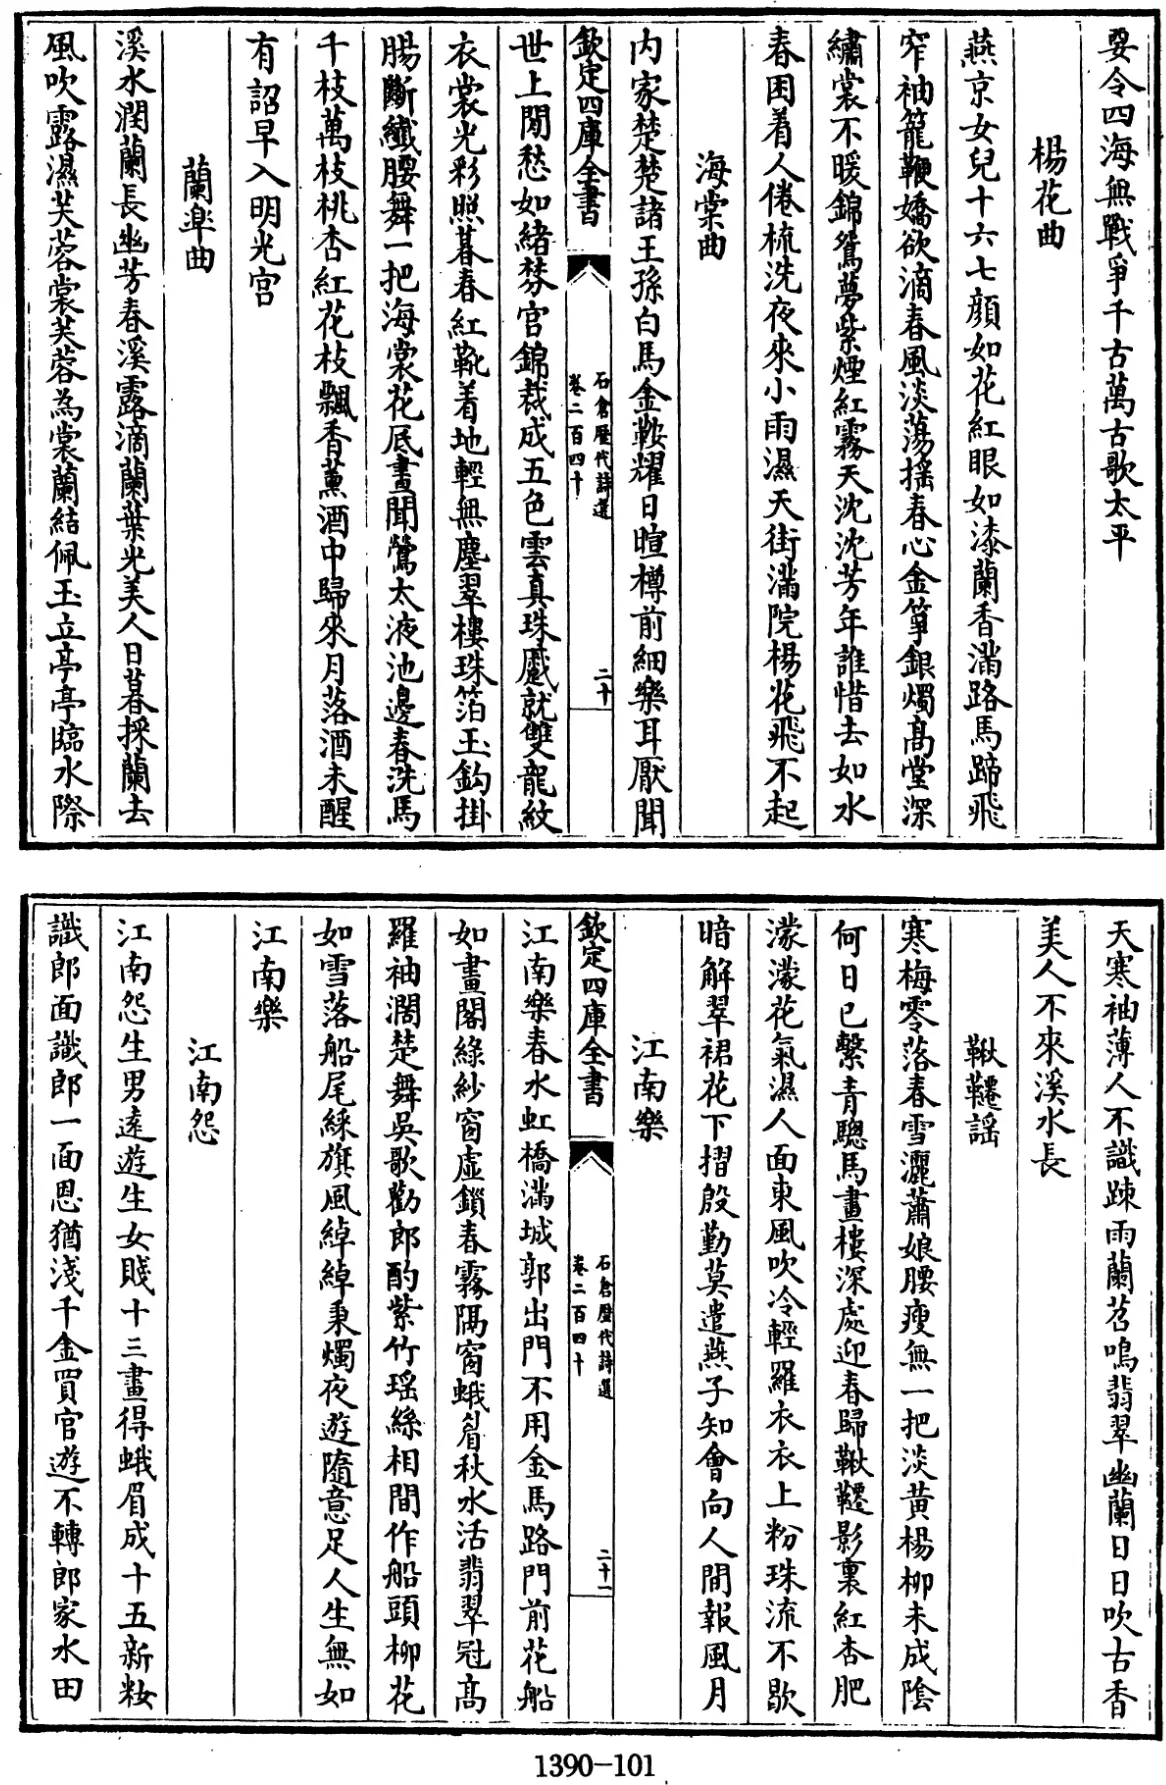 要令四海無戰爭千古萬古歌太平
楊花曲
燕京女兒十六七顏如花紅眼如漆蘭香滿路馬蹄飛
窄袖籠鞭嬌欲滴春風淡蕩揺春心金箏銀燭髙堂深
繡裳不暖錦鴛夢紫煙紅霧天沈沈芳年誰惜去如水
春困着人倦梳洗夜來小雨濕天街滿院楊花飛不起
海棠曲
内家楚楚諸王孫白馬金鞍耀日暄樽前細樂耳厭聞
欽定四庫全書
石倉歴代詩選
卷二百四十
二十
世上閒愁如緒棼官錦裁成五色雲真珠蹙就雙龍紋
衣裳光彩照暮春紅靴着地輕無塵翠樓珠箔玉鈎掛
腸斷纖腰舞一把海棠花底晝聞鶯太液池邊春洗馬
千枝萬枝桃杏紅花枝飄香薰酒中歸來月落酒未醒
有詔早入明光宫
蘭臯曲
溪水潤蘭長幽芳春溪露滴蘭葉光美人日暮採蘭去
風吹露濕芙蓉裳芙蓉為裳蘭結佩玉立亭亭臨水際
天寒袖薄人不識踈雨蘭苕鳴翡翠幽蘭日日吹古香
美人不來溪水長
鞦韆謡
寒梅零落春雪灑蕭娘腰瘦無一把淡黄楊柳未成隂
何日已繫青驄馬畫樓深處迎春歸鞦韆影裏紅杏肥
濛濛花氣濕人面東風吹冷輕羅衣衣上粉珠流不歇
暗解翠裙花下摺殷勤莫遣燕子知會向人間報風月
江南樂
欽定四庫全書
石倉歴代詩選
卷二百四十
二十一
江南樂春水虹橋滿城郭出門不用金馬路門前花船
如畫閣綠紗窗虚鎖春霧隔窗蛾眉秋水活翡翠冠髙
羅袖濶楚舞吳歌勸郎酌紫竹瑶絲相間作船頭柳花
如雪落船尾綵旗風綽綽秉燭夜遊隨意足人生無如
江南樂
江南怨
江南怨生男遠遊生女賤十三畫得蛾眉成十五新粧
識郎面識郎一面恩猶淺千金買官遊不轉郎家水田
1390-101